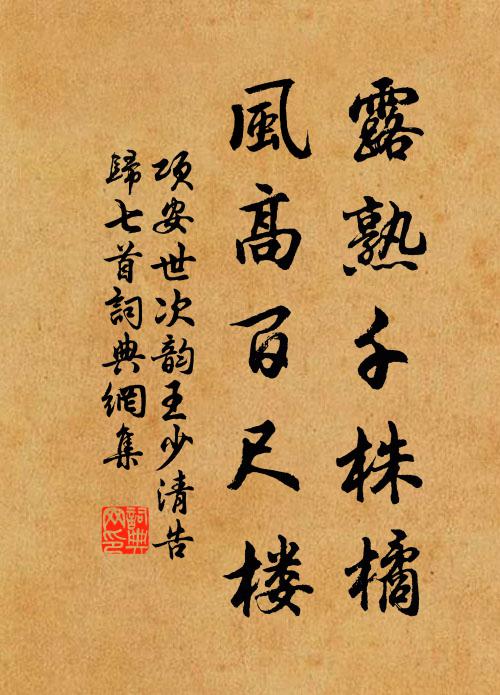 露熟千株橘
風高百尺楼
项安世次韵王少清告
歸七首詞典網集
詞典
网印